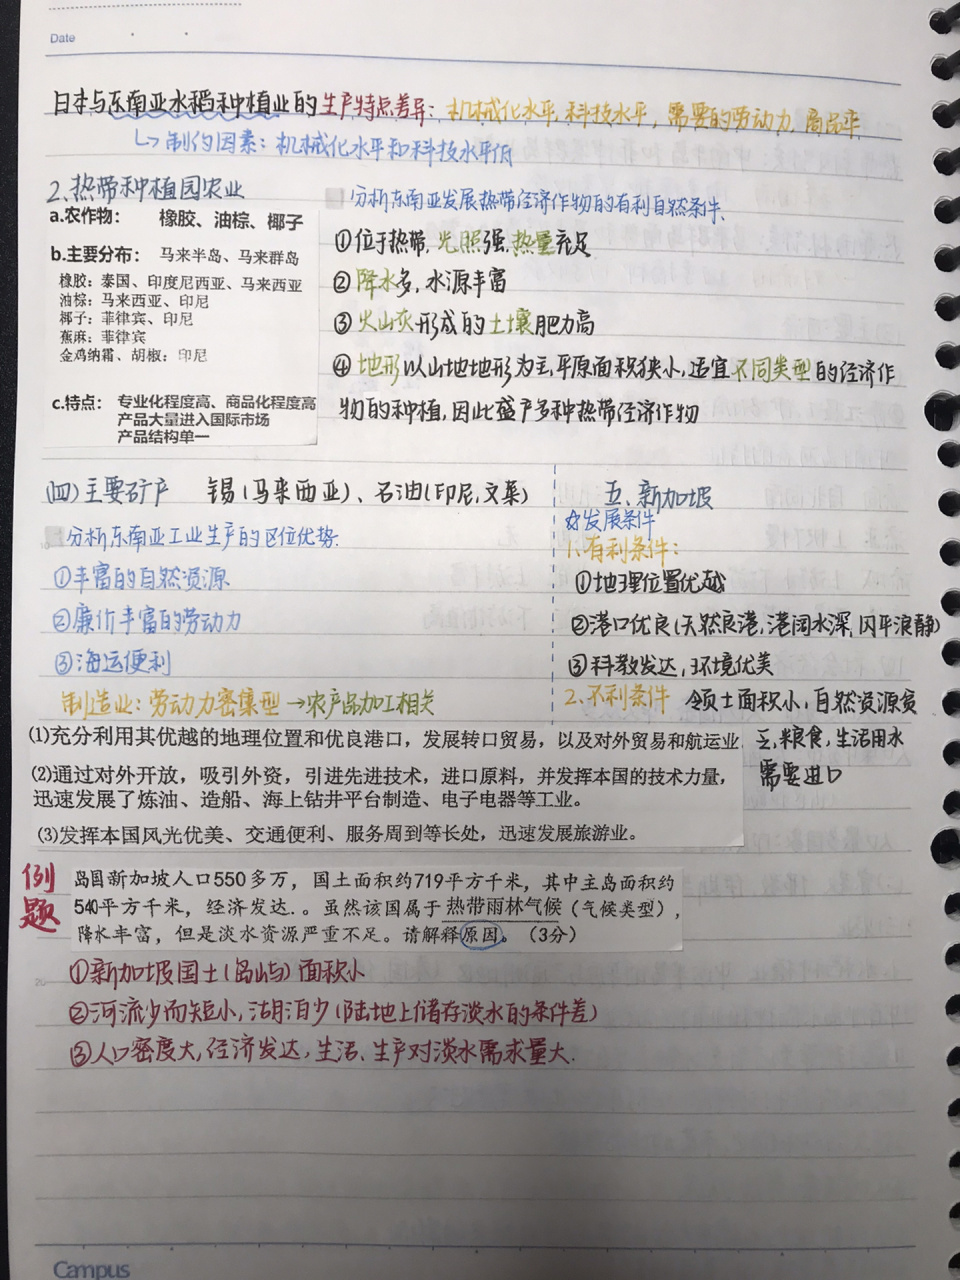 Date
日本与东南亚水稻种植业的生产特点差异：机械化水平,科技水平，需要的劳动力,商品率
↳制约因素：机械化水平和科技水平低
2.热带种植园农业
a.农作物： 橡胶、油棕、椰子
b.主要分布： 马来半岛、马来群岛
橡胶：泰国、印度尼西亚、马来西亚
油棕：马来西亚、印尼
椰子：菲律宾、印尼
蕉麻：菲律宾
金鸡纳霜、胡椒：印尼
c.特点： 专业化程度高、商品化程度高
产品大量进入国际市场
产品结构单一
分析东南亚发展热带经济作物的有利自然条件.
①位于热带,光照强,热量充足
②降水多,水源丰富
③火山灰形成的土壤肥力高
④地形以山地地形为主,平原面积狭小,适宜不同类型的经济作
物的种植,因此盛产多种热带经济作物
(四)主要矿产 锡(马来西亚)、石油(印尼,文莱)
分析东南亚工业生产的区位优势.
①丰富的自然资源
②廉价丰富的劳动力
③海运便利
制造业：劳动力密集型→农产品加工相关
五、新加坡
☆发展条件
1.有利条件：
①地理位置优越
②港口优良(天然良港,港阔水深,风平浪静)
③科教发达,环境优美
2.不利条件 领土面积小,自然资源贫
乏,粮食,生活用水
需要进口
(1)充分利用其优越的地理位置和优良港口，发展转口贸易，以及对外贸易和航运业
(2)通过对外开放，吸引外资，引进先进技术，进口原料，并发挥本国的技术力量，
迅速发展了炼油、造船、海上钻井平台制造、电子电器等工业。
(3)发挥本国风光优美、交通便利、服务周到等长处，迅速发展旅游业。
例题
岛国新加坡人口550多万，国土面积约719平方千米，其中主岛面积约
540平方千米，经济发达.。虽然该国属于热带雨林气候（气候类型），
降水丰富，但是淡水资源严重不足。请解释原因。（3分）
①新加坡国土(岛屿)面积小
②河流少而短小,湖泊少(陆地上储存淡水的条件差)
③人口密度大,经济发达,生活、生产对淡水需求量大.
Campus